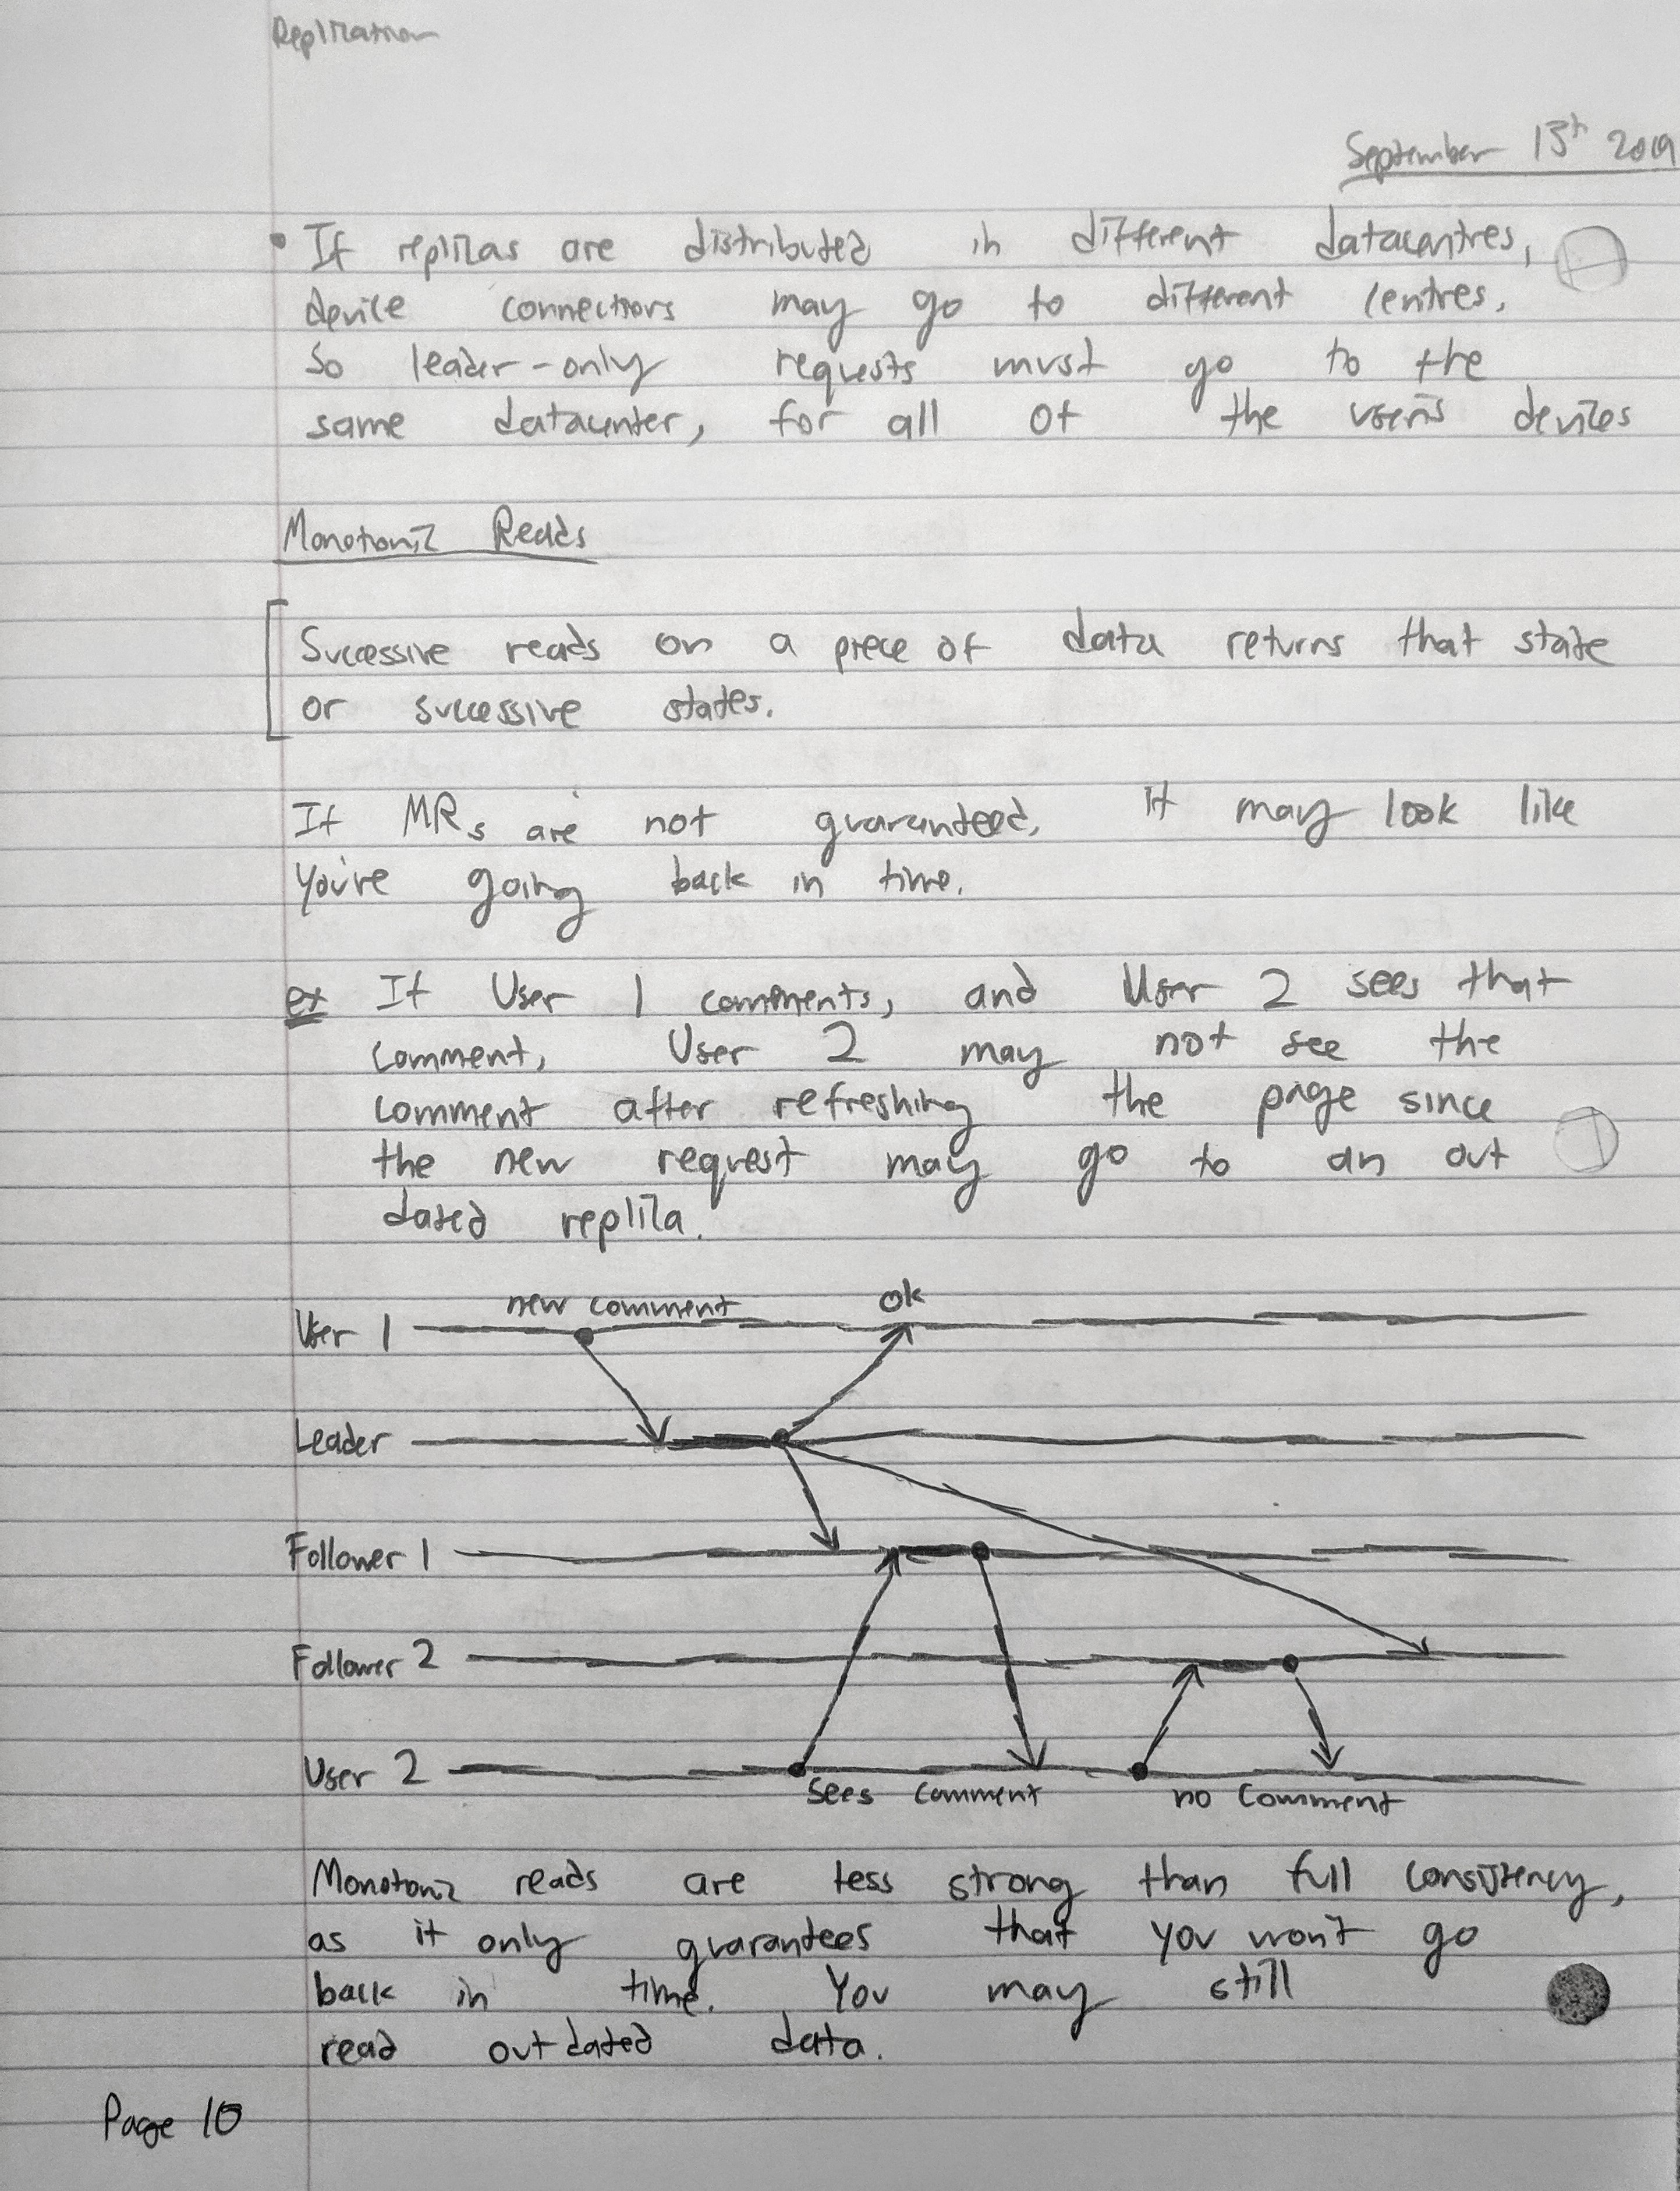 Replication
September 13th 2019
• If replicas are distributed in different datacentres,
device connections may go to different centres.
So leader-only requests must go to the
same datacenter, for all of the user's devices
Monotonic Reads
Successive reads on a piece of data returns that state
or successive states.
If MRs are not guaranteed, it may look like
you're going back in time.
ex If User 1 comments, and User 2 sees that
comment, User 2 may not see the
comment after refreshing the page since
the new request may go to an out
dated replica.
new comment ok
User 1
Leader
Follower 1
Follower 2
User 2
sees comment no comment
Monotonic reads are less strong than full consistency,
as it only guarantees that you won't go
back in time. You may still
read outdated data.
Page 10